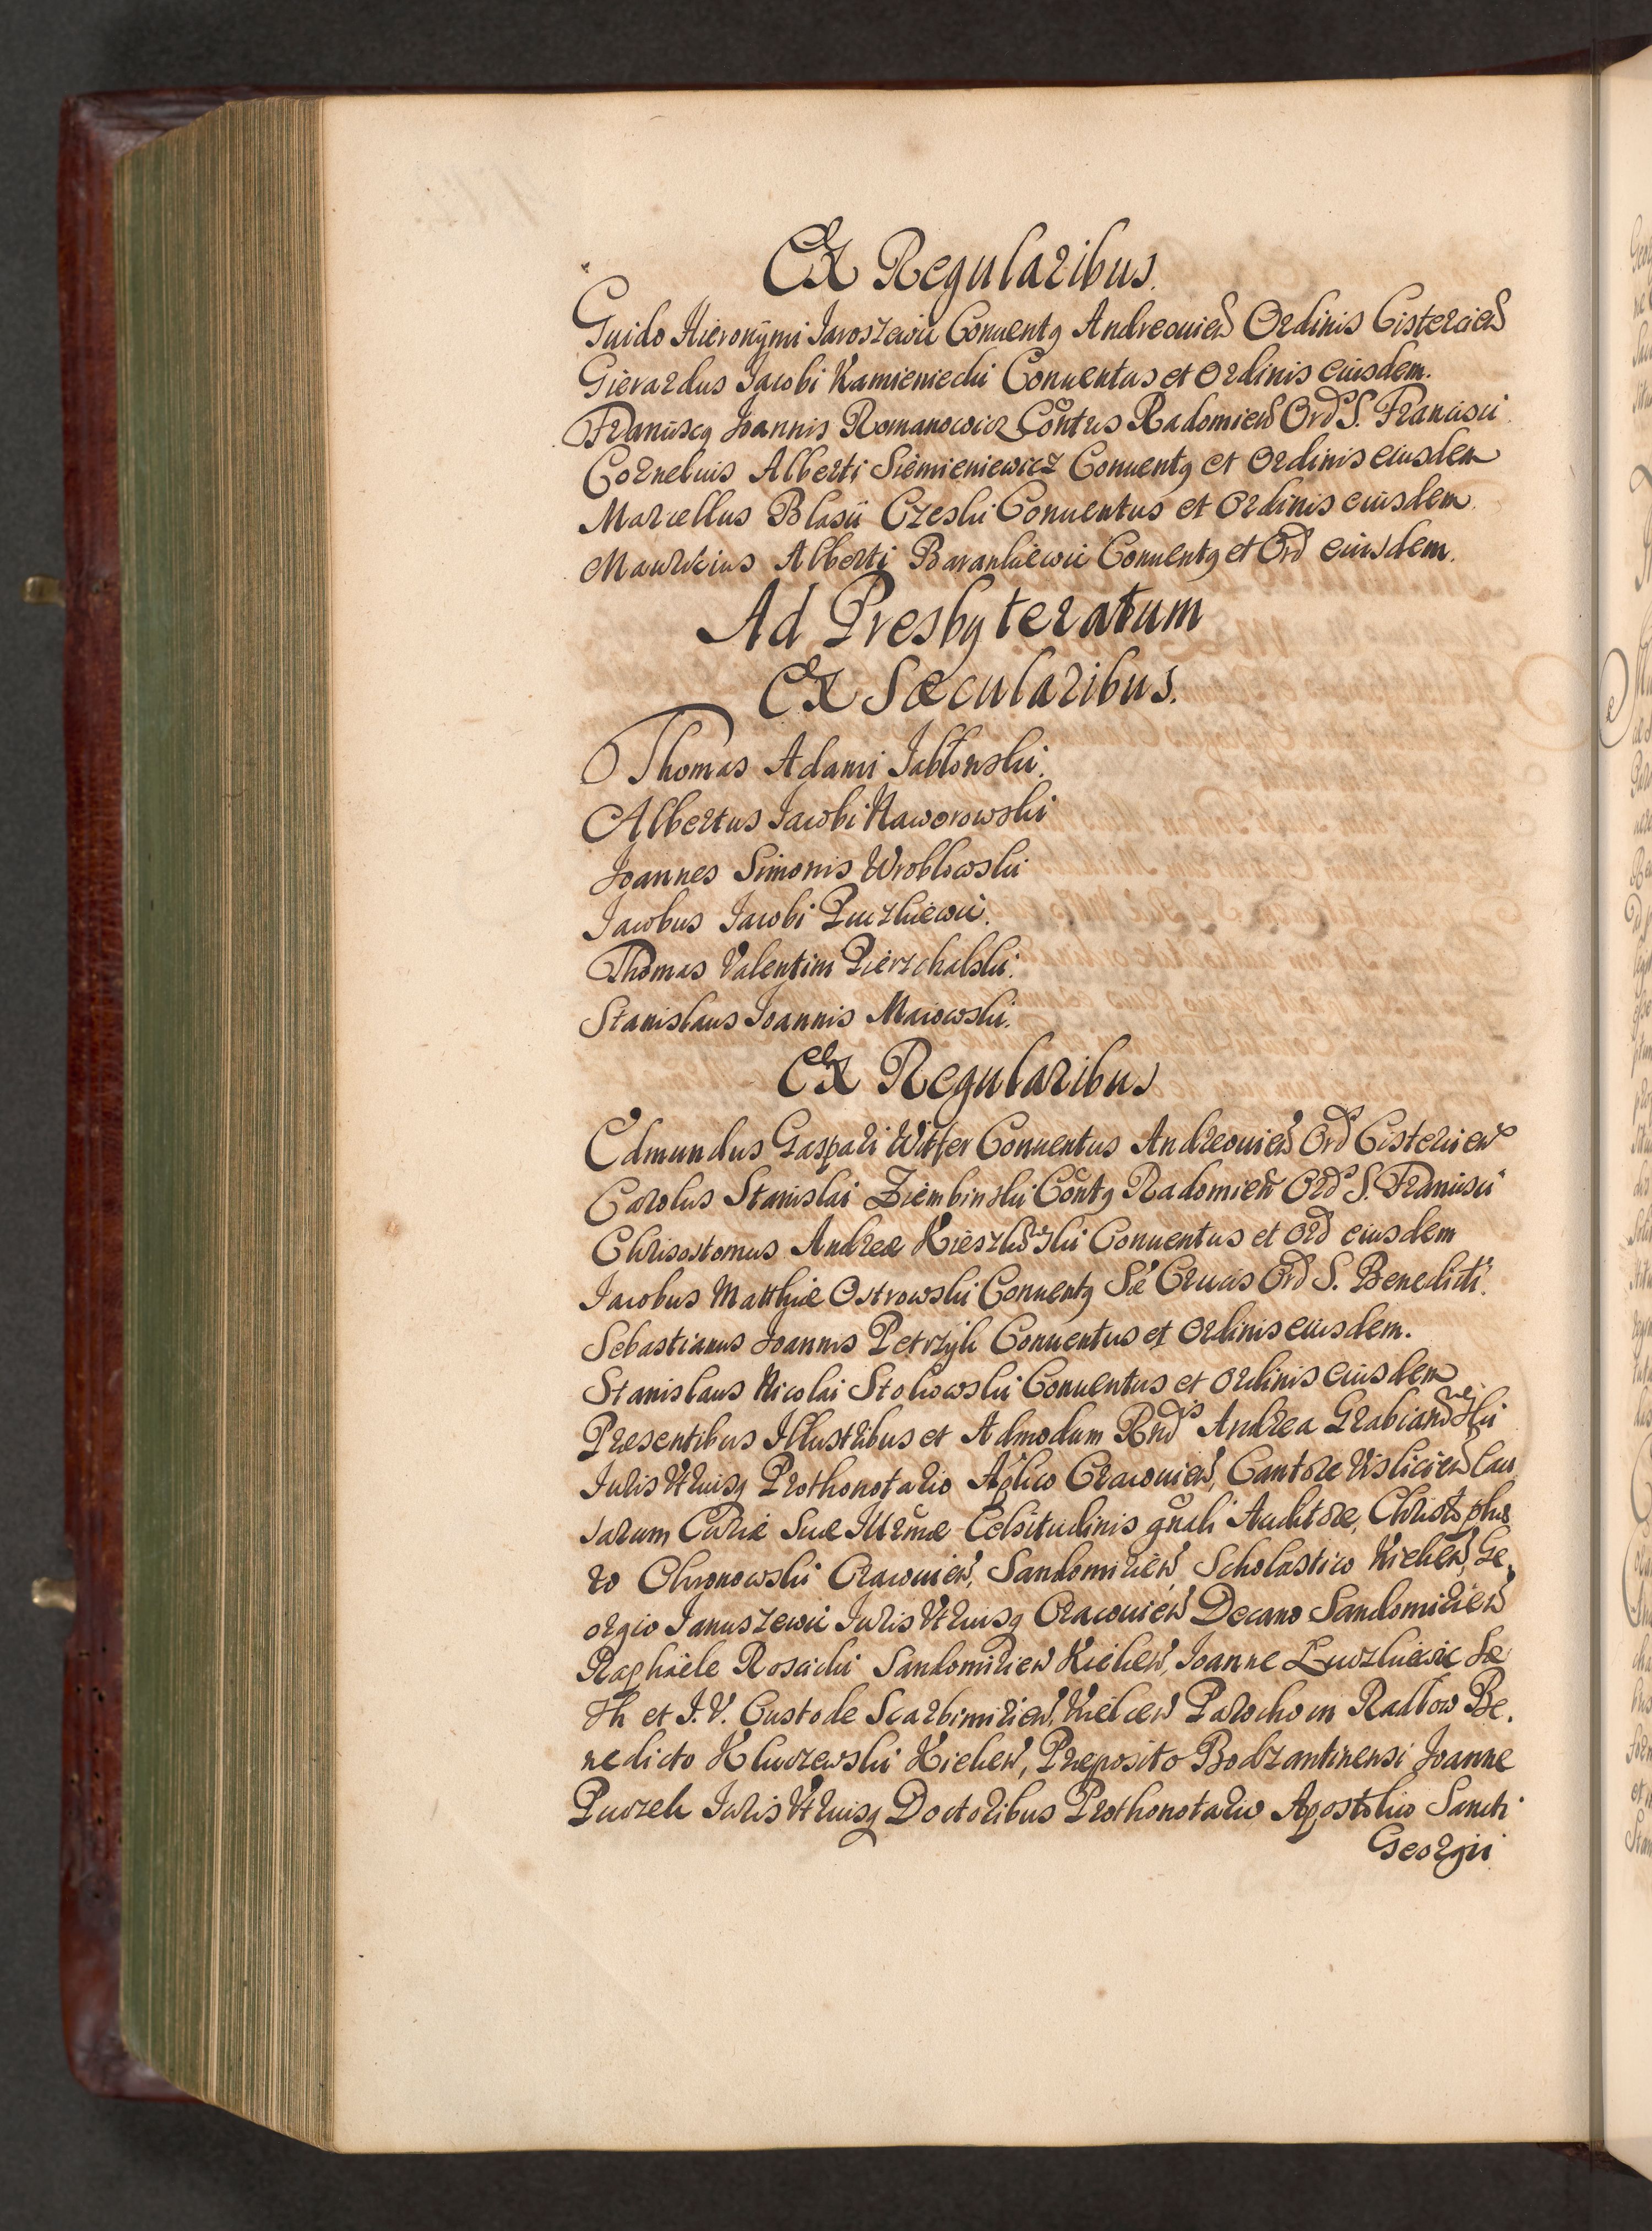 Ex Regularibus.
Guido Hieronÿmi Jaroszewic Conuentq Andreouien̄ Ordinis Cistercien̄
Gierardus Jacobi Kamieniecki Conuentus et Ordinis eiusdem.
Franciscq Joannis Romanowicz Con̄tus Radomien̄ Ord̄ S. Francisci
Cornelius Alberti Siemieniewicz Conuentq et Ordinis eiusdem
Marcellus Blasii Czeski Conuentus et Ordinis eiusdem.
Mauricius Alberti Barankiewic Conuentq et Ord̄ eiusdem.
Ad Presbyteratum
Ex Sæcularibus.
Thomas Adami Jabłonski.
Albertus Jacobi Naworowski
Joannes Simonis Wroblowski
Jacobus Jacobi Puczkiewic.
Thomas Valentini Pierzchalski.
Stanislaus Joannis Maiowski.
Ex Regularibus
Edmundus Gaspari Witter Conuentus Andreouien̄ Ord̄ Cistercien̄
Carolus Stanislai Ziembinski Con̄tq Radomien̄ Ord̄ S. Francisci
Chrisostomus Andreæ Conuentus et Ord̄ eiusdem
Jacobus Matthiæ Ostrowski Conuentq Sæ Crucis Ord̄ S. Benedicti.
Sebastianus Joannis Petrzyk Conuentus et Ordinis eiusdem.
Stanislaus Nicolai Stokowski Conuentus et Ordinis eiusdem
Præsentibus Illustribus et Admodum Rnd̄is Andrea
Juris Vtriusq Prothonotario Ap̄lico Cracouien̄, Cantore Vislicien̄ Cau
sarum Curiæ Suæ Illr̄mæ Celsitudinis gn̄ali Auditore, Christopho
ro Chronowski Cracouien̄, Sandomirien̄, Scholastico Kielcen̄, Ge.
orgio Januszewic Juris Vtriusq Cracouien̄ Decano Sandomirien̄
Raphaële Rosacki Sandomirien̄ Kielcen̄, Joanne Sæ
Th et J. V. Custode Scarbimirien̄. Kielcen̄ Parocho in Radłow Be.
nedicto Kluczewski Kielcen̄, Præposito Bodzantinensi Joanne
Puczek Juris Vtriusq Doctoribus Prothonotario Apostolico Sancti
Georgii